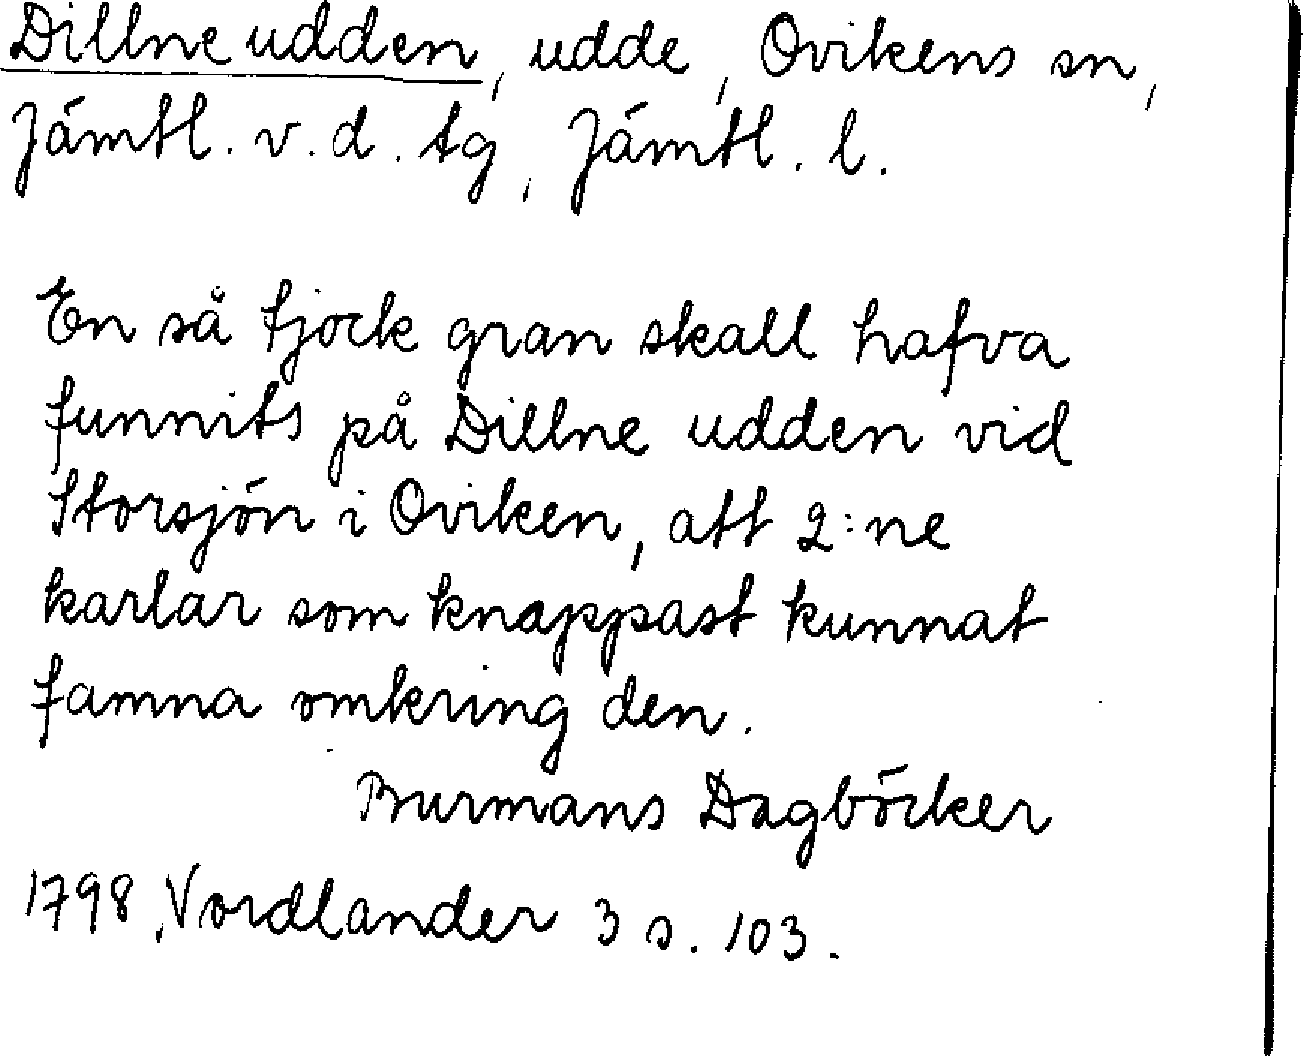 Dillne udden, udde, Ovikens sn,
Jämtl. v. d. tg, Jämtl. l.
En så tjock gran skall hafva
funnits på Dillne udden vid
Storsjön i Oviken, att 2:ne
karlar som knappast kunnat
famna omkring den.
Burmans Dagböcker
1798, Nordlander 3 s. 103.